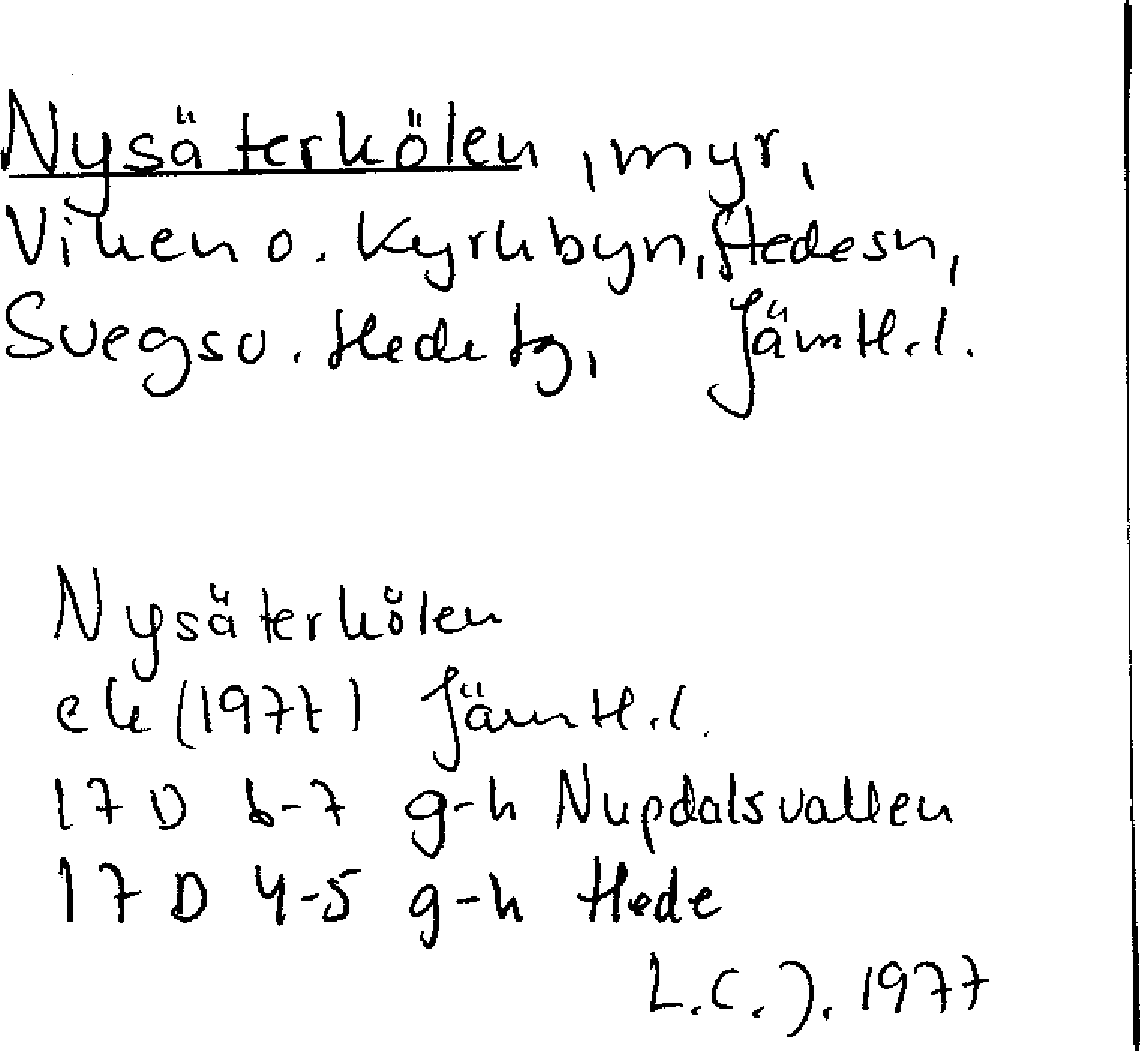 Nysäterkölen, myr,
Viken o. Kyrkbyn, Hedesn,
Svegsv. Hede tg, Jämtl.l.
Nysäterkölen
ek (1977) Jämtl.l.
17 D 6-7 g-h Nupdalsvallen
17 D 4-5 g-h Hede
L.C.J. 1977